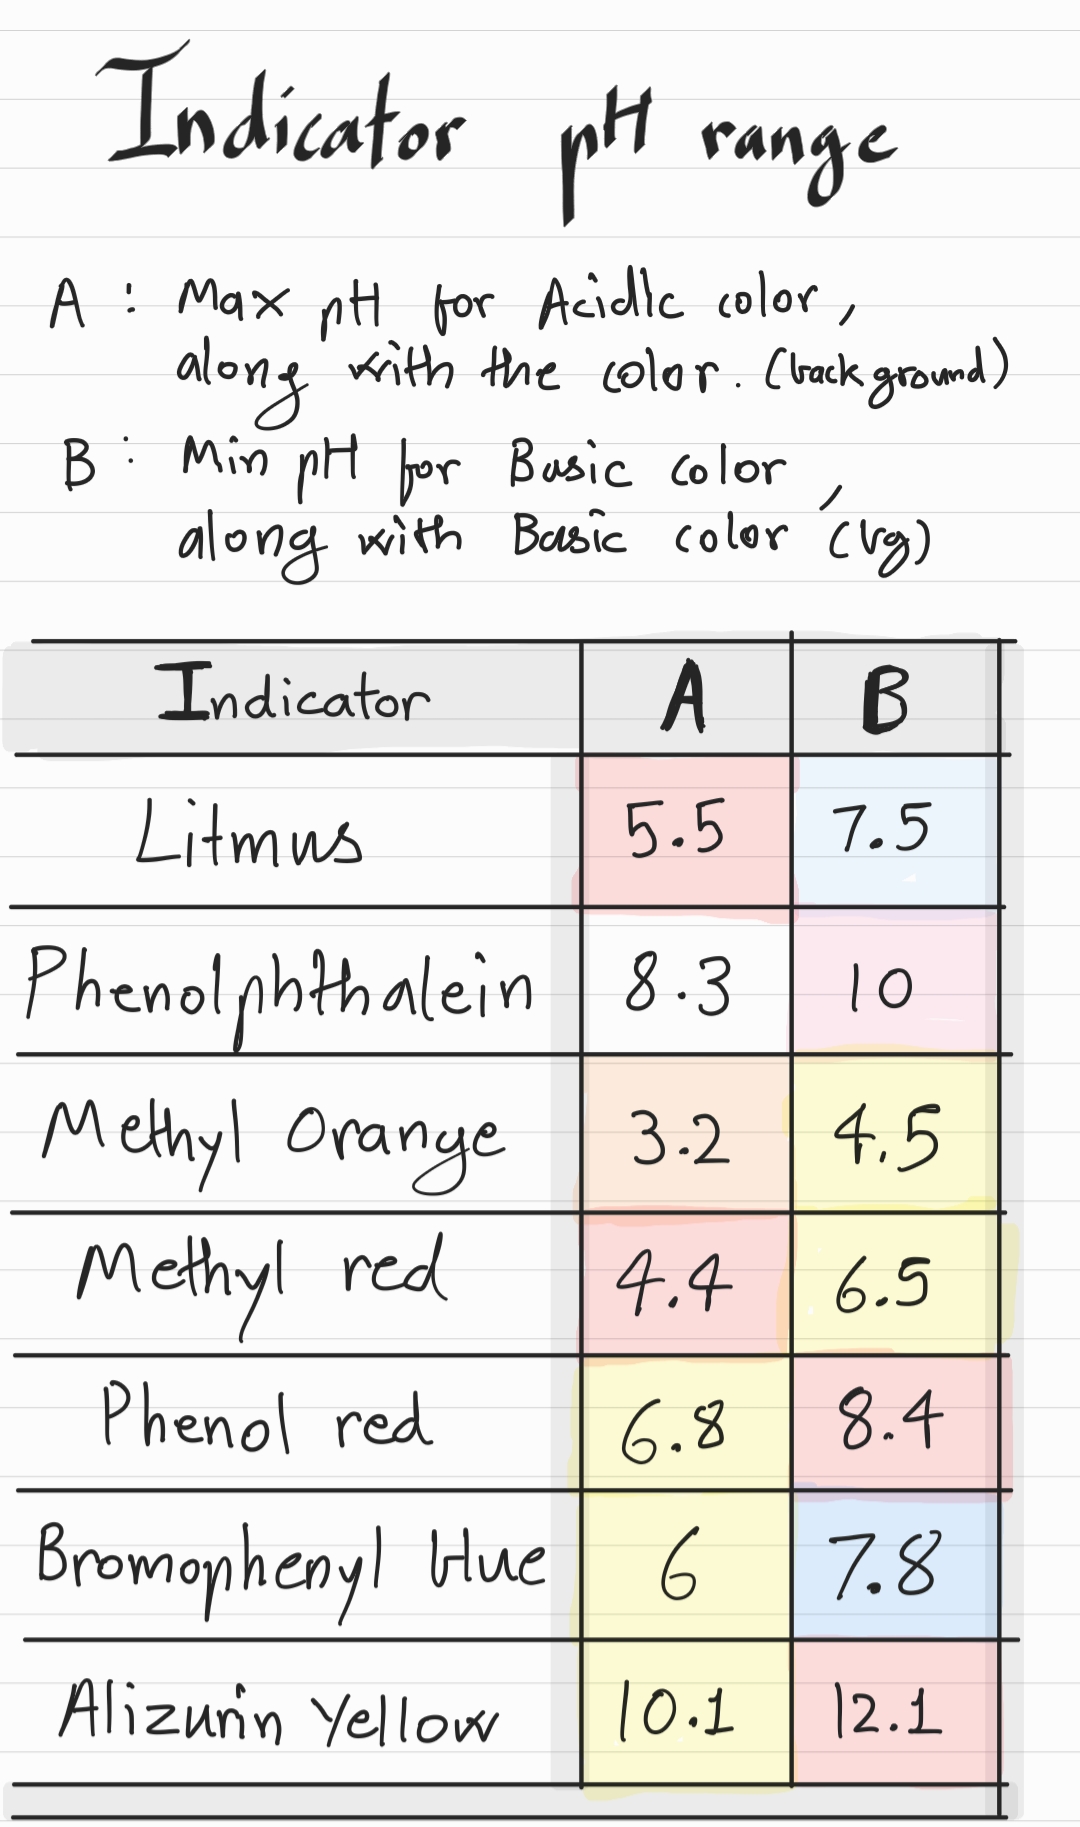 Indicator pH range
A : Max pH for Acidic color,
along with the color. (background)
B : Min pH for Basic color,
along with Basic color (bg)
Indicator A B
Litmus 5.5 7.5
Phenolphthalein 8.3 10
Methyl Orange 3.2 4.5
Methyl red 4.4 6.5
Phenol red 6.8 8.4
Bromophenyl blue 6 7.8
Alizurin Yellow 10.1 12.1